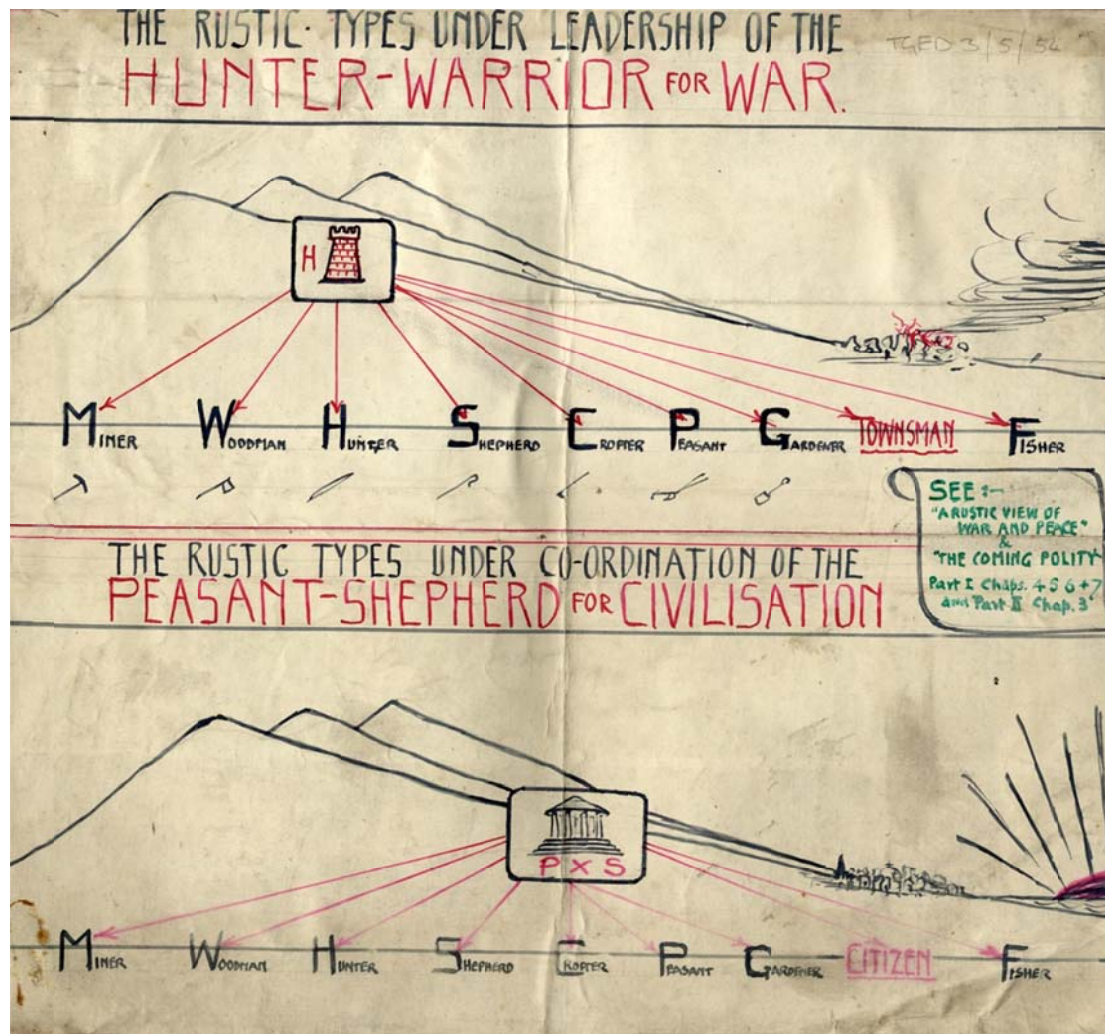 THE RUSTIC TYPES UNDER LEADERSHIP OF THE
TGED 3/5/52
HUNTER-WARRIOR FOR WAR.
H
MINER WOODMAN HUNTER SHEPHERD CROFTER PEASANT GARDENER TOWNSMAN FISHER
SEE:-
"A RUSTIC VIEW OF
WAR AND PEACE"
&
"THE COMING POLITY"
Part I Chaps. 4 5 6 + 7
and Part II Chap. 3
THE RUSTIC TYPES UNDER CO-ORDINATION OF THE
PEASANT-SHEPHERD FOR CIVILISATION
P X S
MINER WOODMAN HUNTER SHEPHERD CROFTER PEASANT GARDENER CITIZEN FISHER